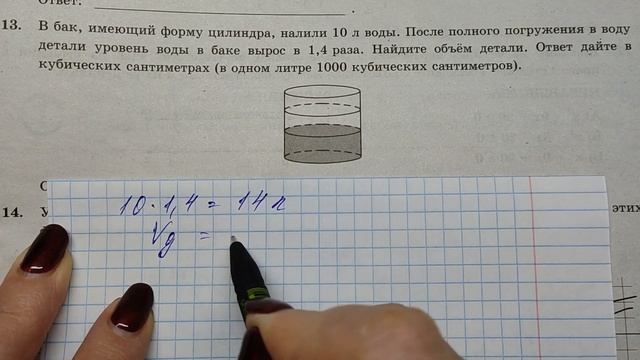 Ответ:
13. В бак, имеющий форму цилиндра, налили 10 л воды. После полного погружения в воду
детали уровень воды в баке вырос в 1,4 раза. Найдите объём детали. Ответ дайте в
кубических сантиметрах (в одном литре 1000 кубических сантиметров).
10 · 1,4 = 14 л
14.
этих
Vд =